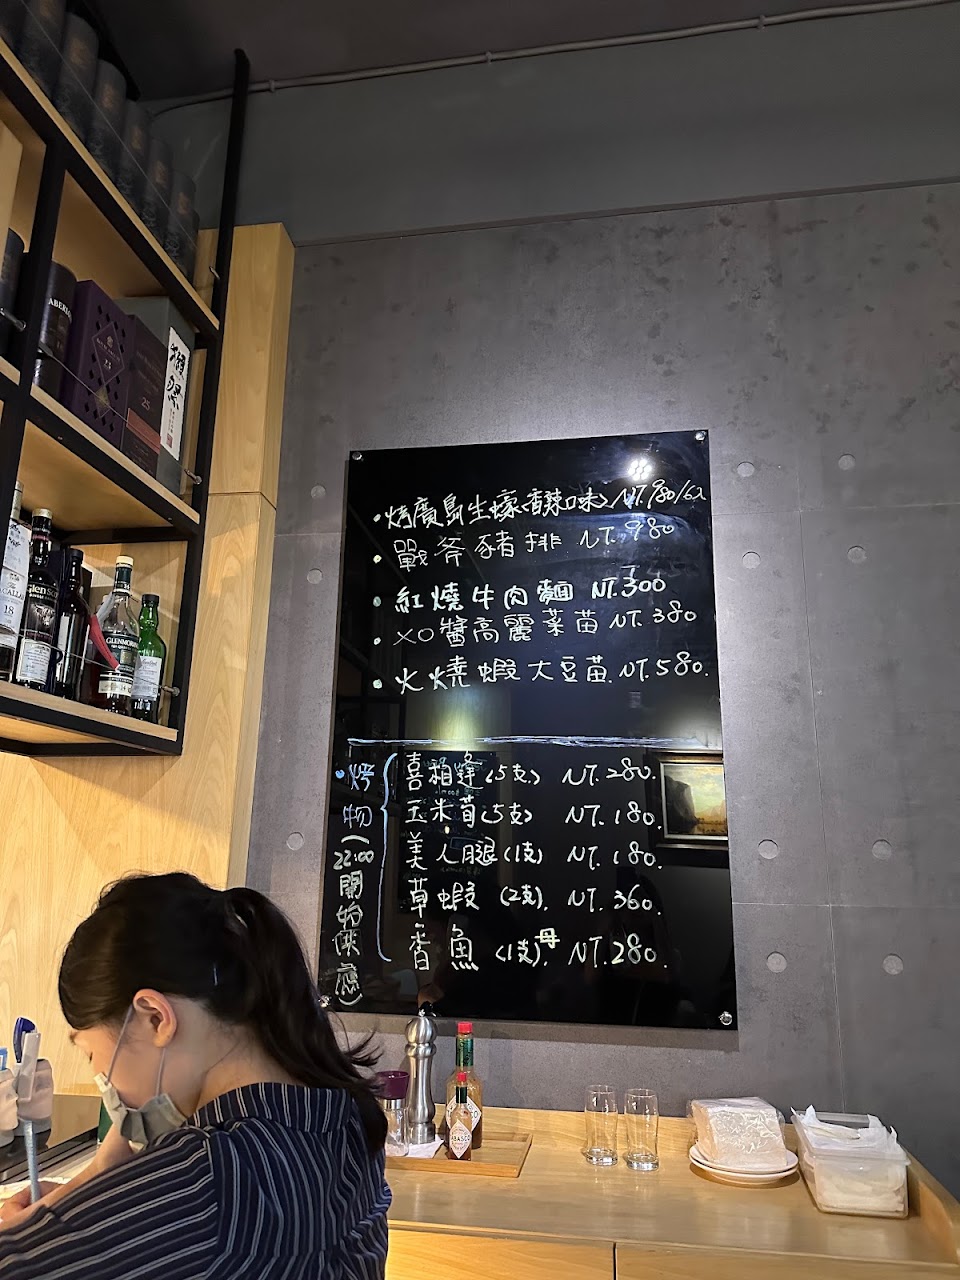 •烤廣島生蠔(香辣口味) NT.980/6入
•戰斧豬排 NT.980
•紅燒牛肉麵 NT.300
•XO醬高麗菜苗 NT.380
•火燒蝦大豆苗 NT.580.
•烤物(22:00開始供應)
喜相逢(5支) NT.280.
玉米筍(5支) NT.180.
美人腿(1支) NT.180.
草蝦(2支). NT.360.
香魚(1支).母 NT.280.
獺祭
25
23
18
GLENMORANGIE
TABASCO